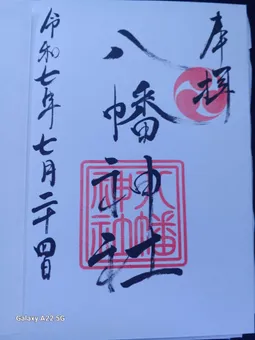 奉拝
八幡神社
八幡
神社
令和七年七月二十四日
Galaxy A22 5G